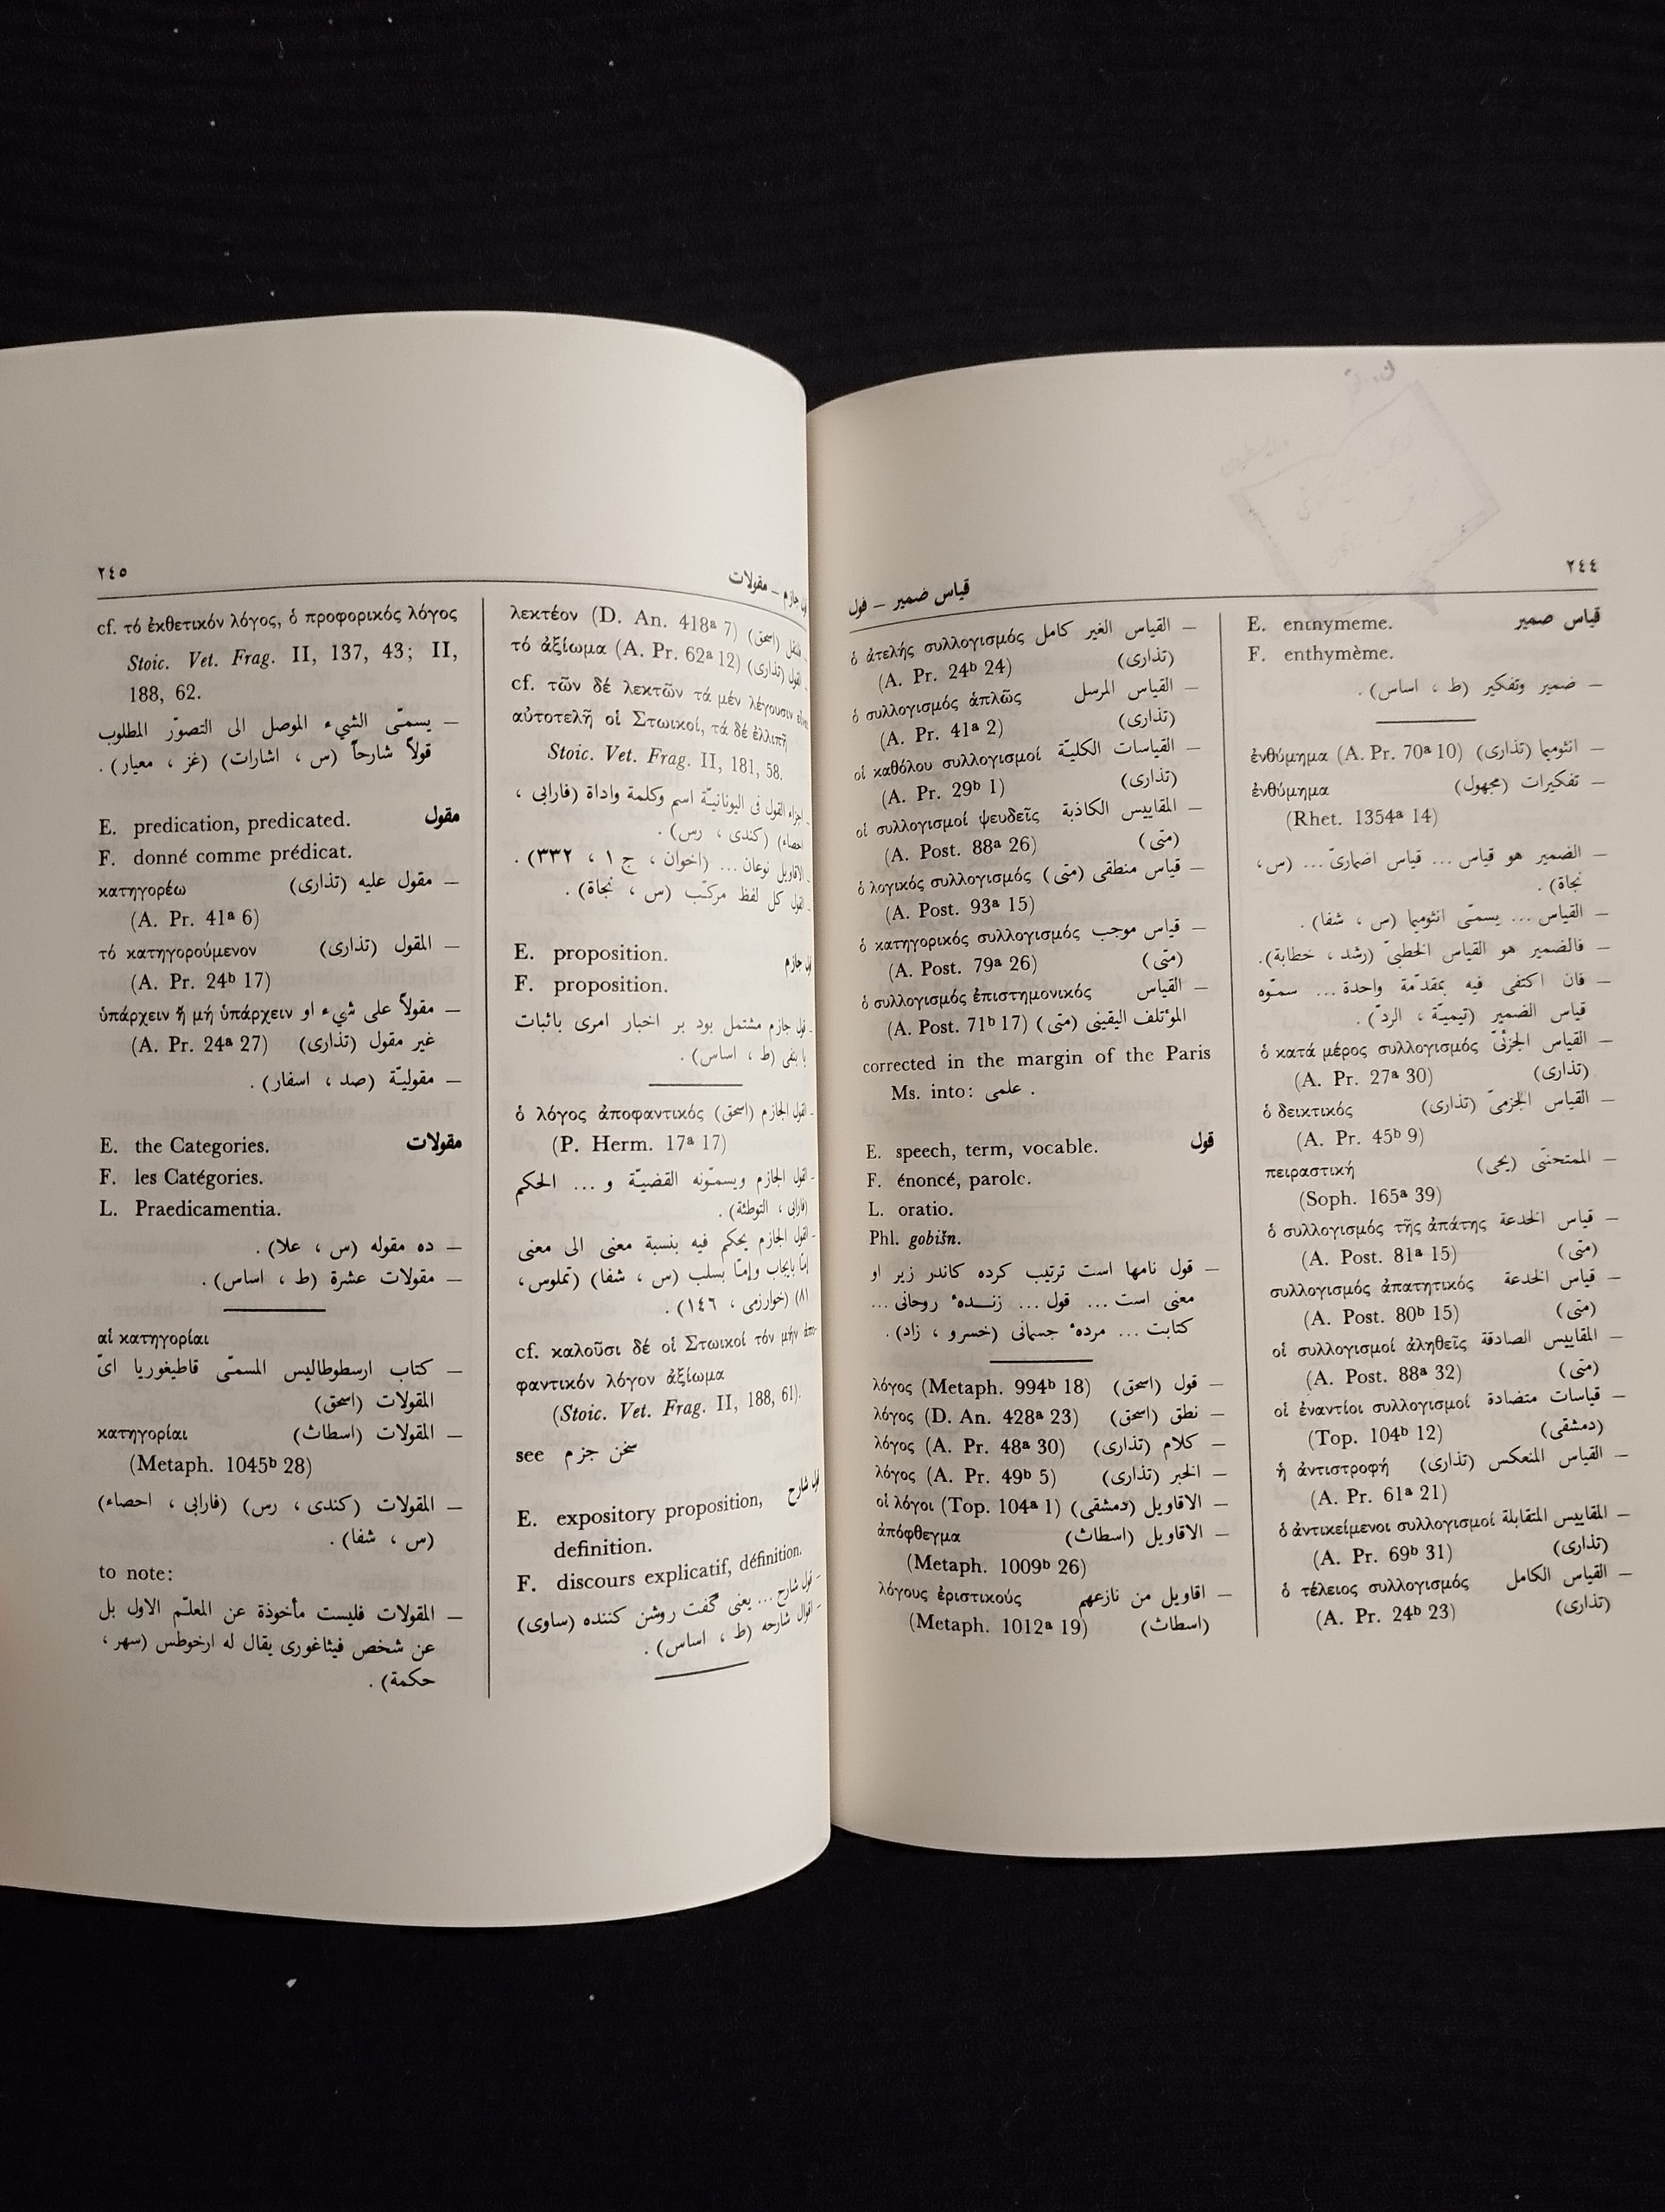 ٢٤٤
قياس ضمير — قول
E. enthymeme. قياس ضمير
F. enthymème.
— ضمير وتفكير (ط ، اساس) .
— انثوميا (تذارى) ἐνθύμημα (A. Pr. 70ª 10)
— تفكيرات (مجهول) ἐνθύμημα
(Rhet. 1354ª 14)
— الضمير هو قياس ... قياس اضمارىّ ... (س ،
نجاة) .
— القياس ... يسمّى انثوميا (س ، شفا) .
— فالضمير هو القياس الخطبىّ (رشد ، خطابة).
— فان اكتفى فيه بمقدّمة واحدة ... سمّوه
قياس الضمير (تيميّة ، الردّ) .
— القياس الجزئىّ ὁ κατά μέρος συλλογισμός
(تذارى) (A. Pr. 27ª 30)
— القياس الجزمىّ (تذارى) ὁ δεικτικός
(A. Pr. 45ᵇ 9)
— الممتحنىّ (يحى) πειραστική
(Soph. 165ª 39)
— قياس الخدعة ὁ συλλογισμός τῆς ἀπάτης
(متى) (A. Post. 81ª 15)
— قياس الخدعة συλλογισμός ἀπατητικός
(متى) (A. Post. 80ᵇ 15)
— المقاييس الصادقة οἱ συλλογισμοί ἀληθεῖς
(متى) (A. Post. 88ª 32)
— قياسات متضادة οἱ ἐναντίοι συλλογισμοί
(دمشقى) (Top. 104ᵇ 12)
— القياس المنعكس (تذارى) ἡ ἀντιστροφή
(A. Pr. 61ª 21)
— المقاييس المتقابلة ὁ ἀντικείμενοι συλλογισμοί
(تذارى) (A. Pr. 69ᵇ 31)
— القياس الكامل ὁ τέλειος συλλογισμός
(تذارى) (A. Pr. 24ᵇ 23)
— القياس الغير كامل ὁ ἀτελής συλλογισμός
(تذارى) (A. Pr. 24ᵇ 24)
— القياس المرسل ὁ συλλογισμός ἁπλῶς
(تذارى) (A. Pr. 41ª 2)
— القياسات الكليّة οἱ καθόλου συλλογισμοί
(تذارى) (A. Pr. 29ᵇ 1)
— المقاييس الكاذبة οἱ συλλογισμοί ψευδεῖς
(متى) (A. Post. 88ª 26)
— قياس منطقى (متى) ὁ λογικός συλλογισμός
(A. Post. 93ª 15)
— قياس موجب ὁ κατηγορικός συλλογισμός
(متى) (A. Post. 79ª 26)
— القياس ὁ συλλογισμός ἐπιστημονικός
المؤتلف اليقينى (متى) (A. Post. 71ᵇ 17)
corrected in the margin of the Paris
Ms. into: علمى .
E. speech, term, vocable. قول
F. énoncé, parole.
L. oratio.
Phl. gobišn.
— قول نامها است ترتيب كرده كاندر زير او
معنى است ... قول ... زنــدهٔ روحانى ...
كتابت ... مردهٔ جسمانى (خسرو ، زاد) .
— قول (اسحق) λόγος (Metaph. 994ᵇ 18)
— نطق (اسحق) λόγος (D. An. 428ª 23)
— كلام (تذارى) λόγος (A. Pr. 48ª 30)
— الخبر (تذارى) λόγος (A. Pr. 49ᵇ 5)
— الاقاويل (دمشقى) οἱ λόγοι (Top. 104ª 1)
— الاقاويل (اسطاث) ἀπόφθεγμα
(Metaph. 1009ᵇ 26)
— اقاويل من نازعهم λόγους ἐριστικούς
(اسطاث) (Metaph. 1012ª 19)
جازم — مقولات
٢٤٥
(اسحق) λεκτέον (D. An. 418ª 7)
القول (تذارى) τό ἀξίωμα (A. Pr. 62ª 12)
cf. τῶν δέ λεκτῶν τά μέν λέγουσιν
αὐτοτελῆ οἱ Στωικοί, τά δέ ἐλλιπῆ
Stoic. Vet. Frag. II, 181, 58.
اجزاء القول فى اليونانيّة اسم وكلمة واداة (فارابى ،
احصاء) (كندى ، رس) .
الاقاويل نوعان ... (اخوان ، ج ١ ، ٣٣٢) .
القول كل لفظ مركّب (س ، نجاة) .
E. proposition. جازم
F. proposition.
قول جازم مشتمل بود بر اخبار امرى باثبات
يا بنفى (ط ، اساس) .
القول الجازم (اسحق) ὁ λόγος ἀποφαντικός
(P. Herm. 17ª 17)
القول الجازم ويسمّونه القضيّة و ... الحكم
(فارابى ، التوطئة) .
القول الجازم يحكم فيه بنسبة معنى الى معنى
إمّا بإيجاب وإمّا بسلب (س ، شفا) (تملوس ،
٨١) (خوارزمى ، ١٤٦) .
cf. καλοῦσι δέ οἱ Στωικοί τόν μήν ἀπο-
φαντικόν λόγον ἀξίωμα
(Stoic. Vet. Frag. II, 188, 61).
see سخن جزم
E. expository proposition, قول شارح
definition.
F. discours explicatif, définition.
— قول شارح ... يعنى گفت روشن كننده (ساوى)
— اقوال شارحه (ط ، اساس) .
cf. τό ἐκθετικόν λόγος, ὁ προφορικός λόγος
Stoic. Vet. Frag. II, 137, 43; II,
188, 62.
— يسمّى الشيء الموصل الى التصوّر المطلوب
قولاً شارحاً (س ، اشارات) (غز ، معيار) .
E. predication, predicated. مقول
F. donné comme prédicat.
— مقول عليه (تذارى) κατηγορέω
(A. Pr. 41ª 6)
— المقول (تذارى) τό κατηγορούμενον
(A. Pr. 24ᵇ 17)
— مقولاً على شيء او ὑπάρχειν ἤ μή ὑπάρχειν
غير مقول (تذارى) (A. Pr. 24ª 27)
— مقوليّة (صد ، اسفار) .
E. the Categories. مقولات
F. les Catégories.
L. Praedicamentia.
— ده مقوله (س ، علا) .
— مقولات عشرة (ط ، اساس) .
αἱ κατηγορίαι
— كتاب ارسطوطاليس المسمّى قاطيغوريا اىّ
المقولات (اسحق)
— المقولات (اسطاث) κατηγορίαι
(Metaph. 1045ᵇ 28)
— المقولات (كندى ، رس) (فارابى ، احصاء)
(س ، شفا) .
to note:
— المقولات فليست مأخوذة عن المعلّم الاول بل
عن شخص فيثاغورى يقال له ارخوطس (سهر ،
حكمة) .